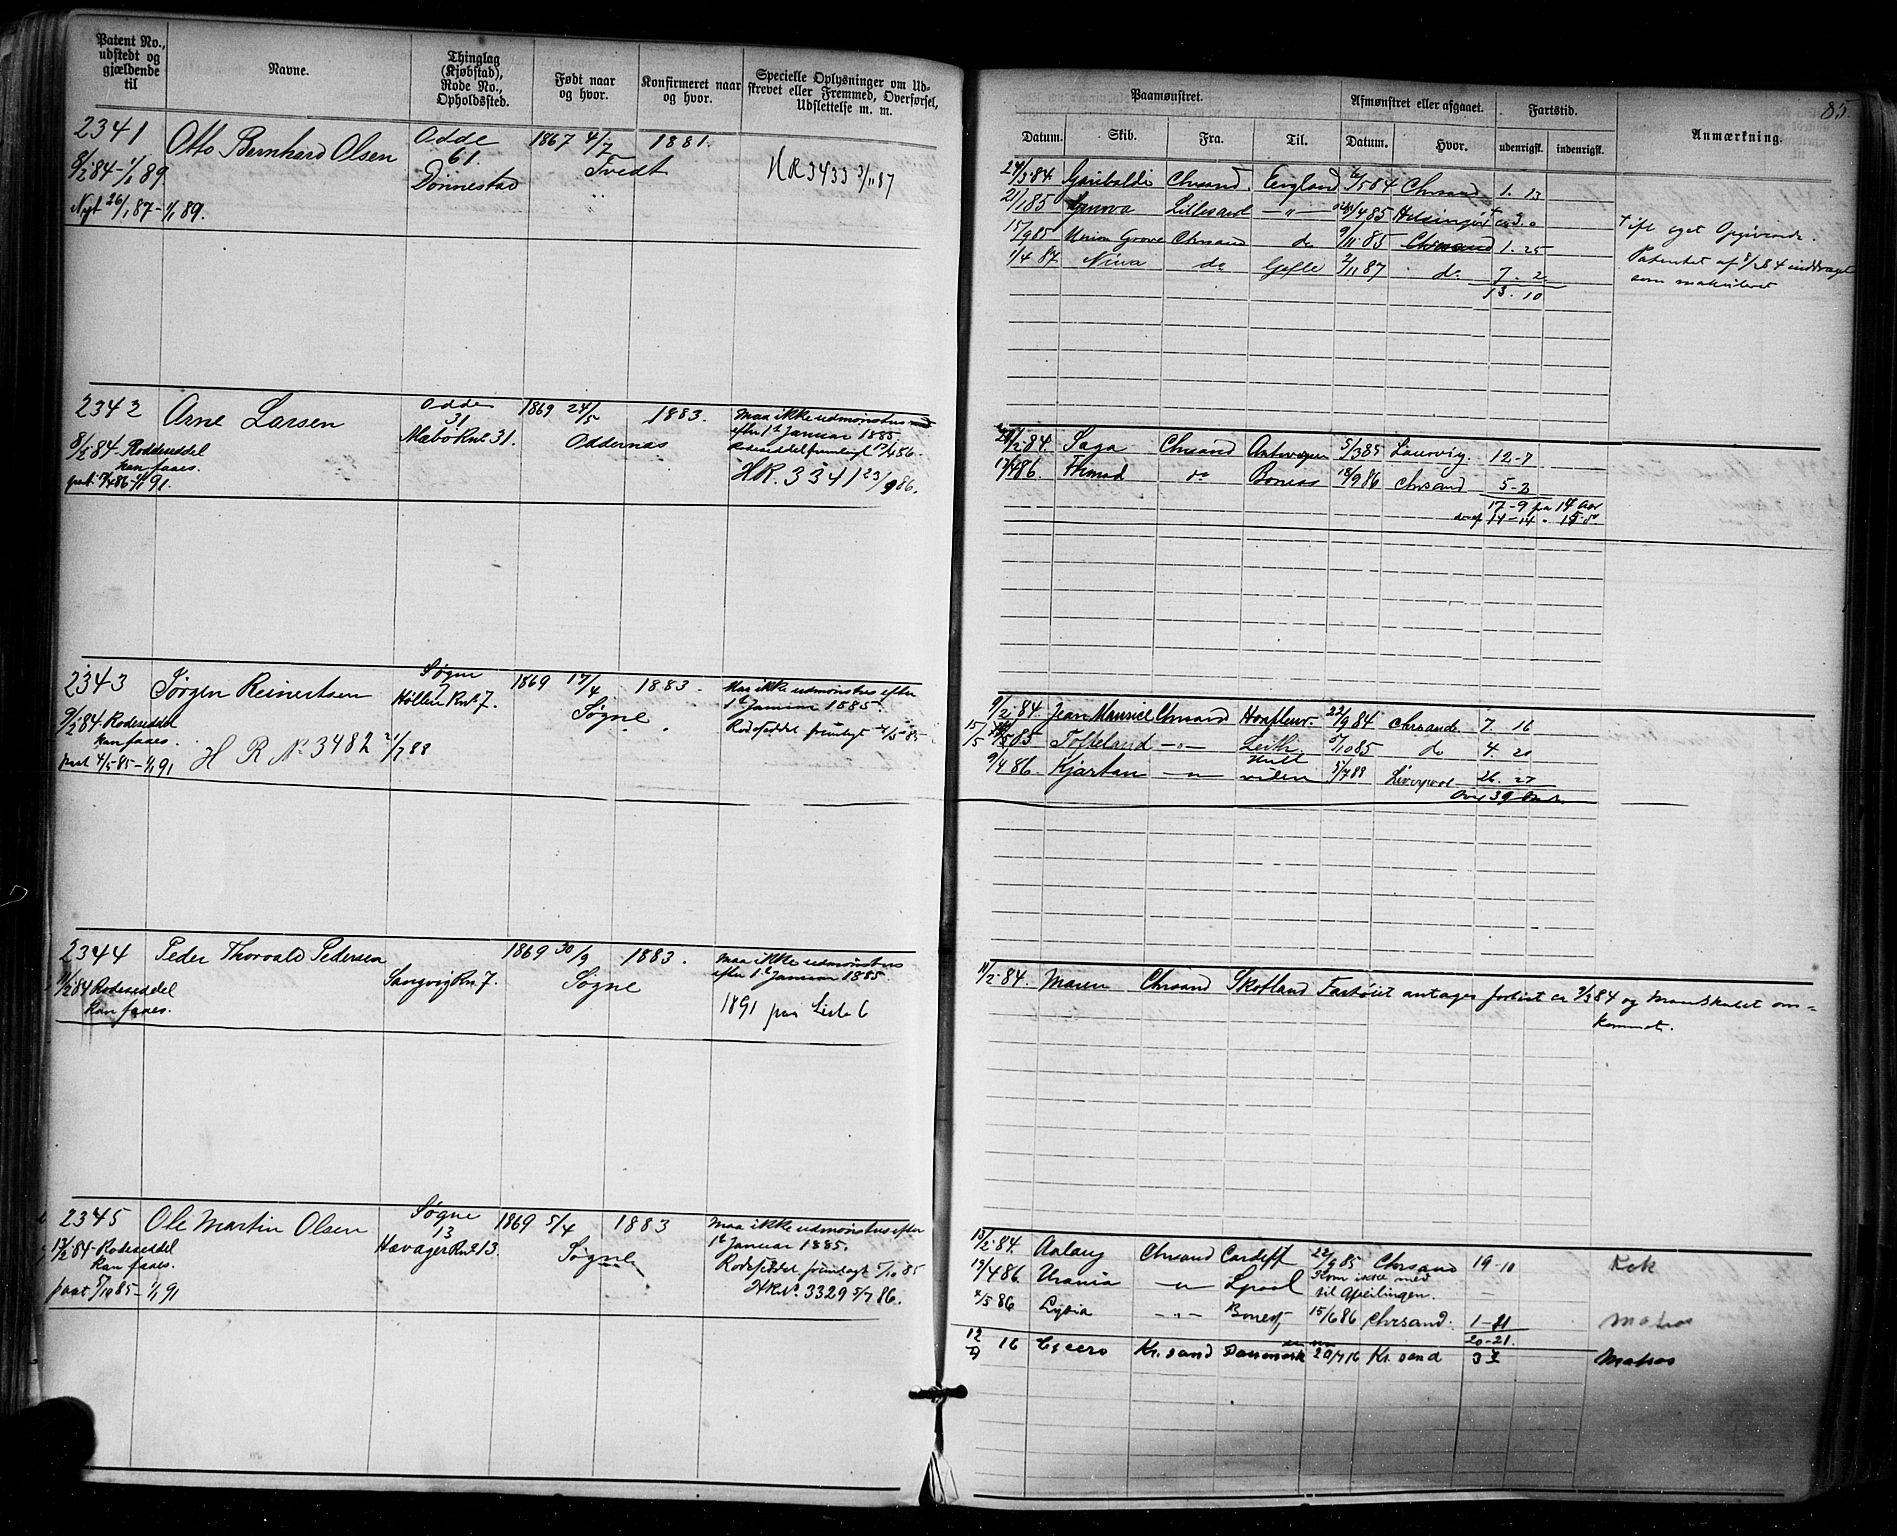 Patent No.,
udstedt og
gjældende
til
Navne.
Thinglag
(Kjøbstad),
Rode No.,
Opholdssted.
Født naar
og hvor.
Konfirmeret naar
og hvor.
Specielle Oplysninger om Ud-
skrevet eller Fremmed, Overførsel,
Udslettelse m. m.
2341
Otto Bernhard Olsen
Odde
61.
Dønnestad
1867 4/7
Tvedt
1881.
HR 3433 3/11 87
8/2 84-1/1 89
Nyt 26/1 87-1/1 89.
2342
Arne Larsen
Odde
31
Mæbø Rno 31.
1869 24/5
Oddernæs
1883.
Maa ikke udmønstres
efter 1te Januar 1885
Rodeseddel fremlagt 17/4 86.
HR. 3341 23/9 86.
8/2 84-Rodeseddel
kan faaes.
pat. 17/4 86-1/1 91.
2343
Jørgen Reinertsen
Søgne
7
Høllen Rno 7.
1869 17/4
Søgne
1883.
Maa ikke udmønstres efter
1te Januar 1885.
Rodeseddel fremlagt 4/5 85
9/2 84-Rodeseddel
kan faaes.
pat 4/5 85-1/1 91
H R No 3482 21/7 88
2344
Peder Thorvald Pedersen
Langvig Rno 7.
1869 30/9
Søgne
1883.
Maa ikke udmønstres
efter 1te Januar 1885.
1891 paa Liste C
11/2 84 Rodeseddel
kan faaes.
2345
Ole Martin Olsen
Søgne
13
Hævager Rno 13.
1869 5/4
Søgne
1883
Maa ikke udmønstres efter
1te Januar 1885.
Rodeseddel fremlagt 5/10 85
HR No. 3329 5/7 86.
13/2 84-Rodeseddel
kan faaes.
pat 5/10 85-1/1 91
85.
Paamønstret.
Afmønstret eller afgaaet.
Fartstid.
Anmærkning.
Datum.
Skib.
Fra.
Til.
Datum.
Hvor.
udenrigsk.
indenrigsk.
27/3 84 Garibaldi Chrsand. England 5 84 Chrsand 1. 13
21/1 85 Genova Lillesand -"- 4 85 Helsingør +
15/9 85 Union Grove Chrsand do 9/11 85 Chrsand 1. 25
1/4 87 Nina do Gefle 2/11 87 do 7. 2.
13. 10
+ ifl eget Opgivende.
Patentet af 8/2 84 inddraget
som makuleret
2/2 84. Saga Chrsand Antwerpen 5/3 85 Laurvig. 12-7
17/4 86. Thrmod do Boness 18/9 86 Chrsand 5-2
17-9 fra 14 Aar
do af 14-14 " 15 do
9/2 84 Jean Mauriel Chrsand Honfleur. 22/9 84 Chrsand. 7. 16
15/5 5 85 Folkeland -"- Leith 5/10 85 do 4. 20
9/4 86. Kjartan -"- Hull
viden 5/7 88 Liverpool 26. 27
Over 39 Md.
11/2 84. Maren Chrsand Skotland Fartøiet antages forlist ca 9/3 84 og Mandskabet om-
kommet.
13/2 84. Aalaug Chrsand Cardiff 22/9 85 Chrsand 19-10 Kok
19/4 86 Urania -"- Lpool Kom ikke med
til Afseilingen.
4/5 86 Lydia -"- Bones 15/6 86 Chrsand. 1-11 Matros
20-21.
12 16 Cicero Kr. sand Danmark 20/7 16 Kr. sand 3 Matros